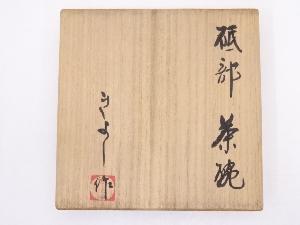 砥部 茶碗
きよし
作